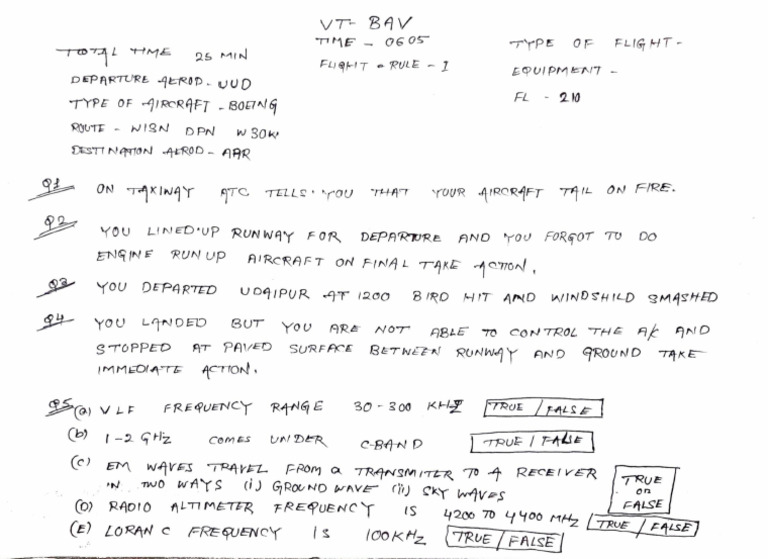 VT- BAV
TIME - 0605
FLIGHT - RULE - I
TOTAL TIME 25 MIN
DEPARTURE AEROD - UUD
TYPE OF AIRCRAFT - BOEING
ROUTE - W13N DPN W30W
DESTINATION AEROD - AAR
TYPE OF FLIGHT -
EQUIPMENT -
FL - 210
Q1 ON TAXIWAY ATC TELLS YOU THAT YOUR AIRCRAFT TAIL ON FIRE.
Q2 YOU LINED UP RUNWAY FOR DEPARTURE AND YOU FORGOT TO DO
ENGINE RUNUP AIRCRAFT ON FINAL TAKE ACTION.
Q3 YOU DEPARTED UDAIPUR AT 1200 BIRD HIT AND WINDSHILD SMASHED
Q4 YOU LANDED BUT YOU ARE NOT ABLE TO CONTROL THE A/C AND
STOPPED AT PAVED SURFACE BETWEEN RUNWAY AND GROUND TAKE
IMMEDIATE ACTION.
Q5 (a) VLF FREQUENCY RANGE 30-300 KHZ TRUE / FALSE
(b) 1-2 GHZ COMES UNDER C-BAND TRUE / FALSE
(C) EM WAVES TRAVEL FROM a TRANSMITER TO A RECEIVER
IN TWO WAYS (i) GROUND WAVE (ii) SKY WAVES TRUE or FALSE
(D) RADIO ALTIMETER FREQUENCY IS 4200 TO 4400 MHZ TRUE / FALSE
(E) LORAN C FREQUENCY IS 100KHZ TRUE / FALSE